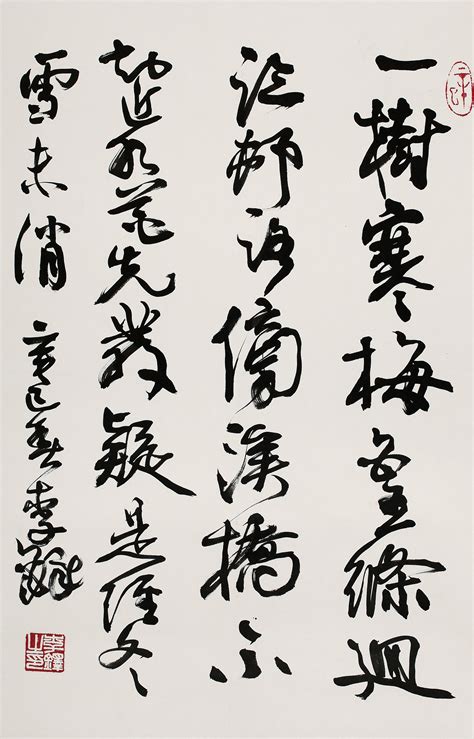 一樹寒梅白玉條迥
臨邨路傍溪橋不
知近水花先發疑是經冬
雪未消 辛巳春李鐸
李鐸之印